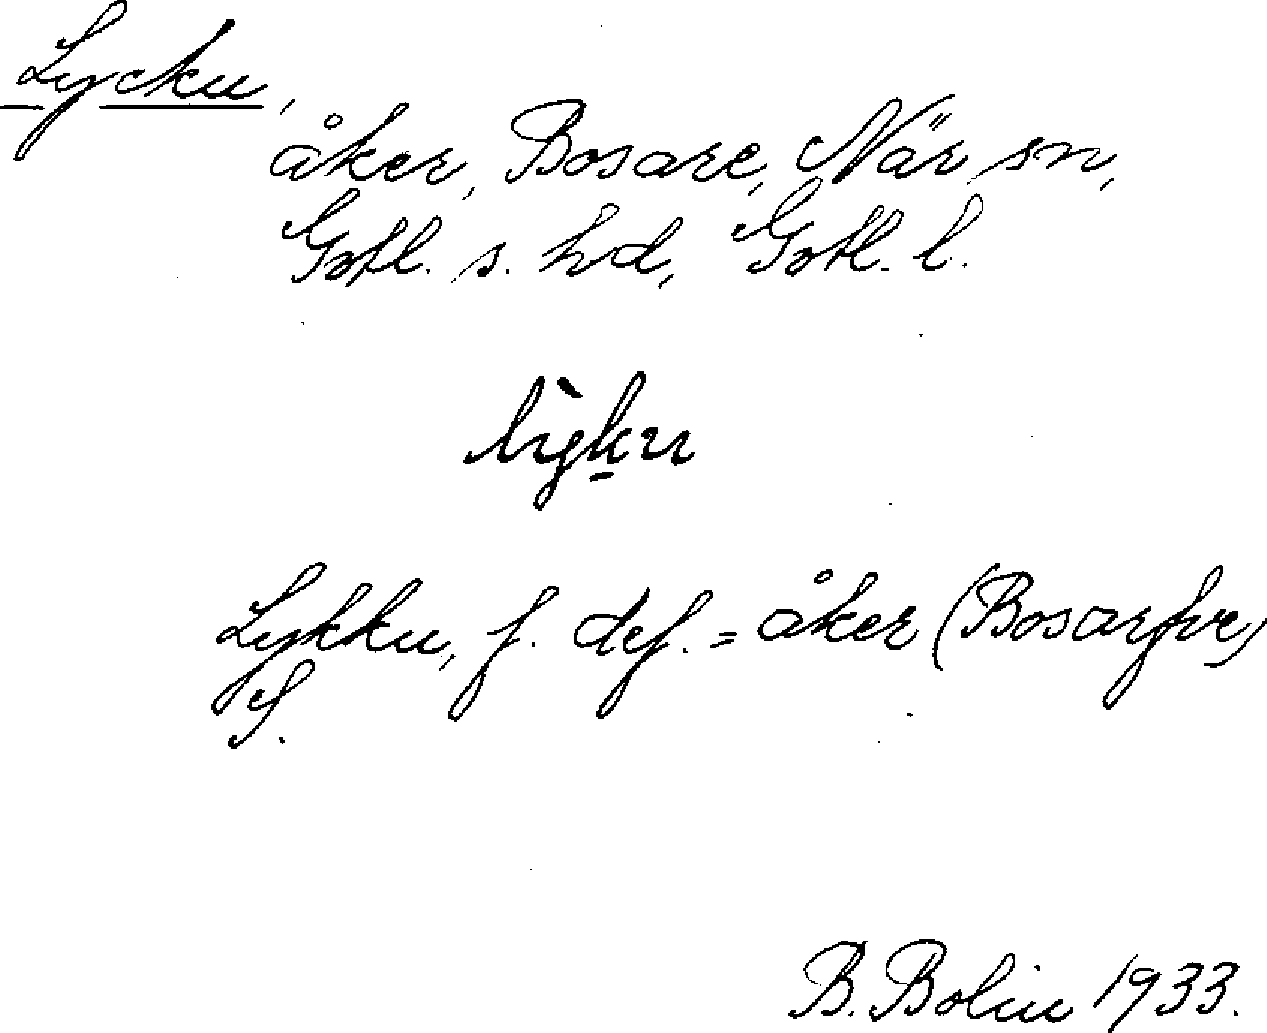 Lycku,
åker, Bosare, När sn,
Gotl. s. hd, Gotl. l.
lỳk̲u
Lykku, f. def. = åker (Bosarfve)
S.
B. Bolin 1933.